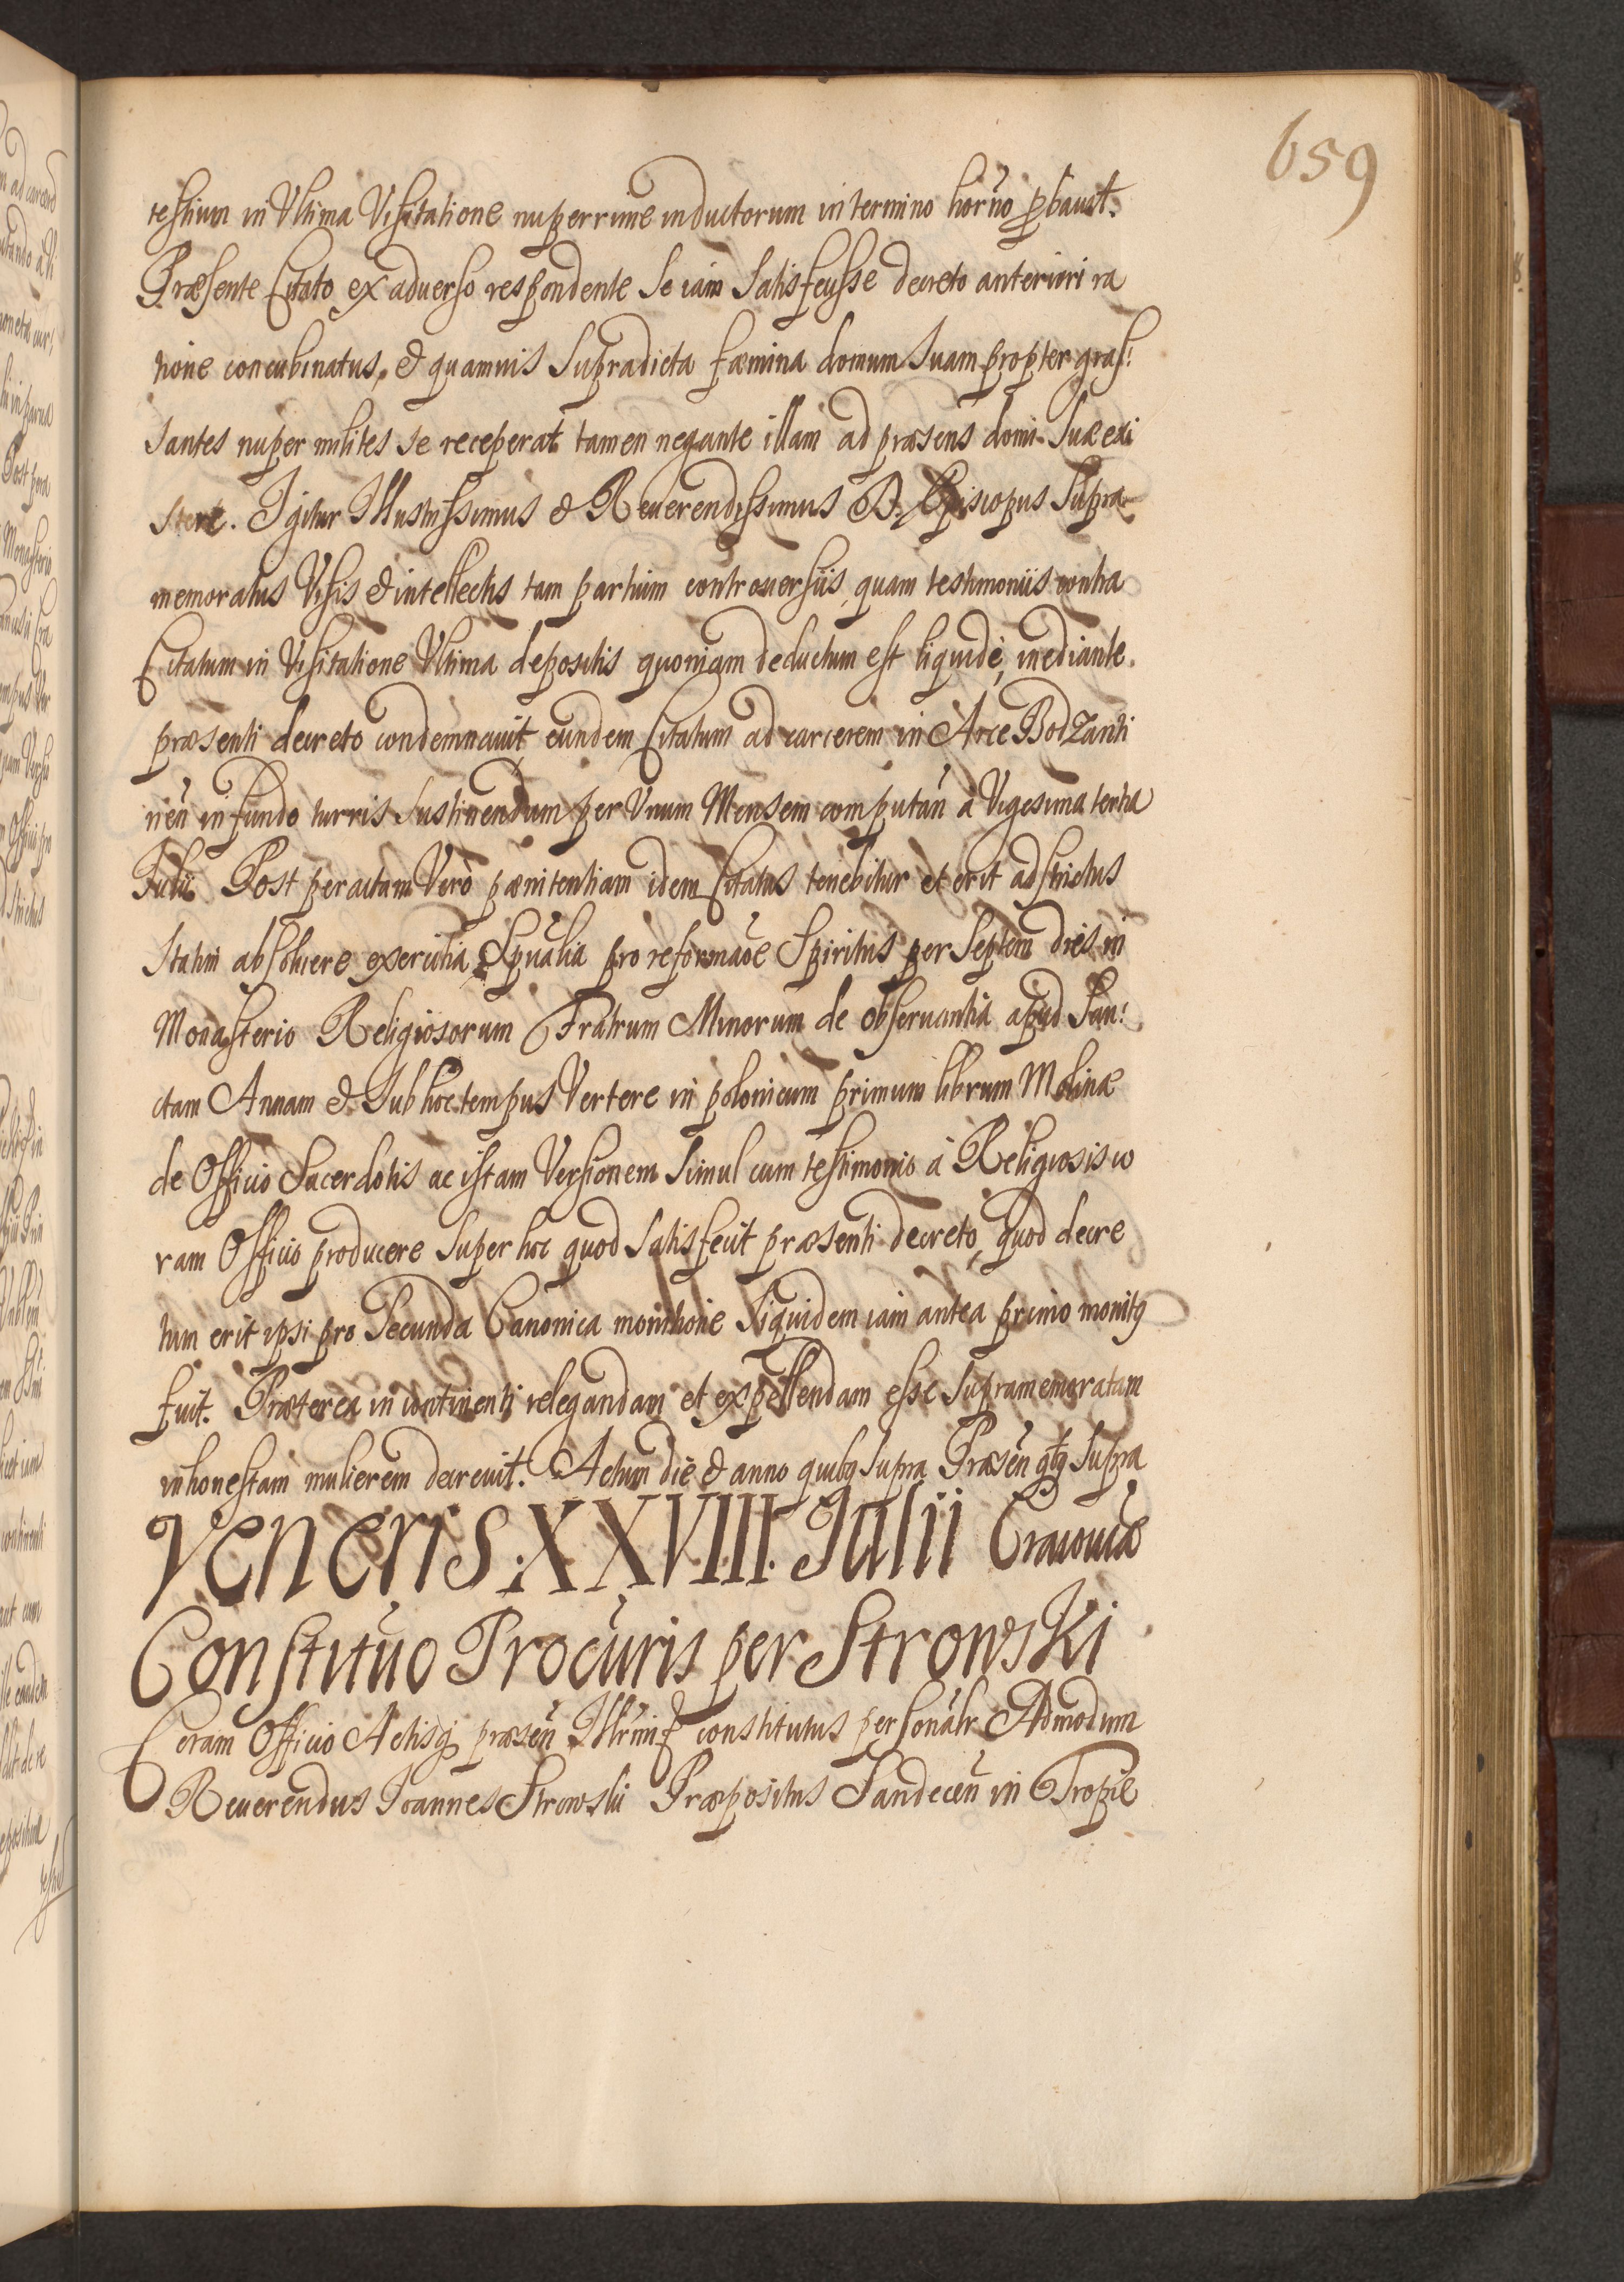 659
testium in Vltima Visitatione nuperrime inductorum in termino horno pbauit.
Præsente Citato ex aduerso respondente Se iam Satisfecisse decreto anteriori ra
tione concubinatus, & quamuis Supradicta fæmina domum Suam propter gras:
santes nuper milites se receperat tamen negante illam ad præsens domi Suæ exi
stere. Igitur Illustrissimus & Reuerendissimus D. Episcopus Supra
memoratus Visis & intellectis tam partium controuersiis, quam testimoniis contra
Citatum in Visitatione Vltima depositis quoniam deductum est liquidè, mediante
præsenti decreto condemnauit eundem Citatum ad carcerem in Arce Bodzanti
nen̄ in fundo turris Sustinendum per Vnum Mensem computan̄ à Vigesima tertia
Julii Post peractam Verò pænitentiam idem Citatus tenebitur et erit adstrictus
Statim absoluere exercitia Spualia pro reformaōe Spiritus per Septem dies in
Monasterio Religiosorum Fratrum Minorum de obseruantia apud San:
ctam Annam & Sub hoc tempus Vertere in polonicum primum librum Molinæ
de Officio Sacerdotis ac istam Versionem Simul cum testimonio à Religiosis co
ram Officio producere Super hoc quod Satisfecit præsenti decreto, quod decre
tum erit ipsi pro Secunda Canonica monitione Siquidem iam antea primo monitq
fuit. Præterea in continenti relegandam et expellendam esse Supramemoratam
inhonestam mulierem decreuit. Actum die & anno quibq supra Præsen̄ qbq Supra
Veneris XXVIII. Julii Cracouiæ
Constituo Procūris per Strowski
Coram Officio Actisq præsen̄ Illrmi constitutus personalr Admodum
Reuerendus Joannes Strowski Præpositus Sandecen̄ in Tropie